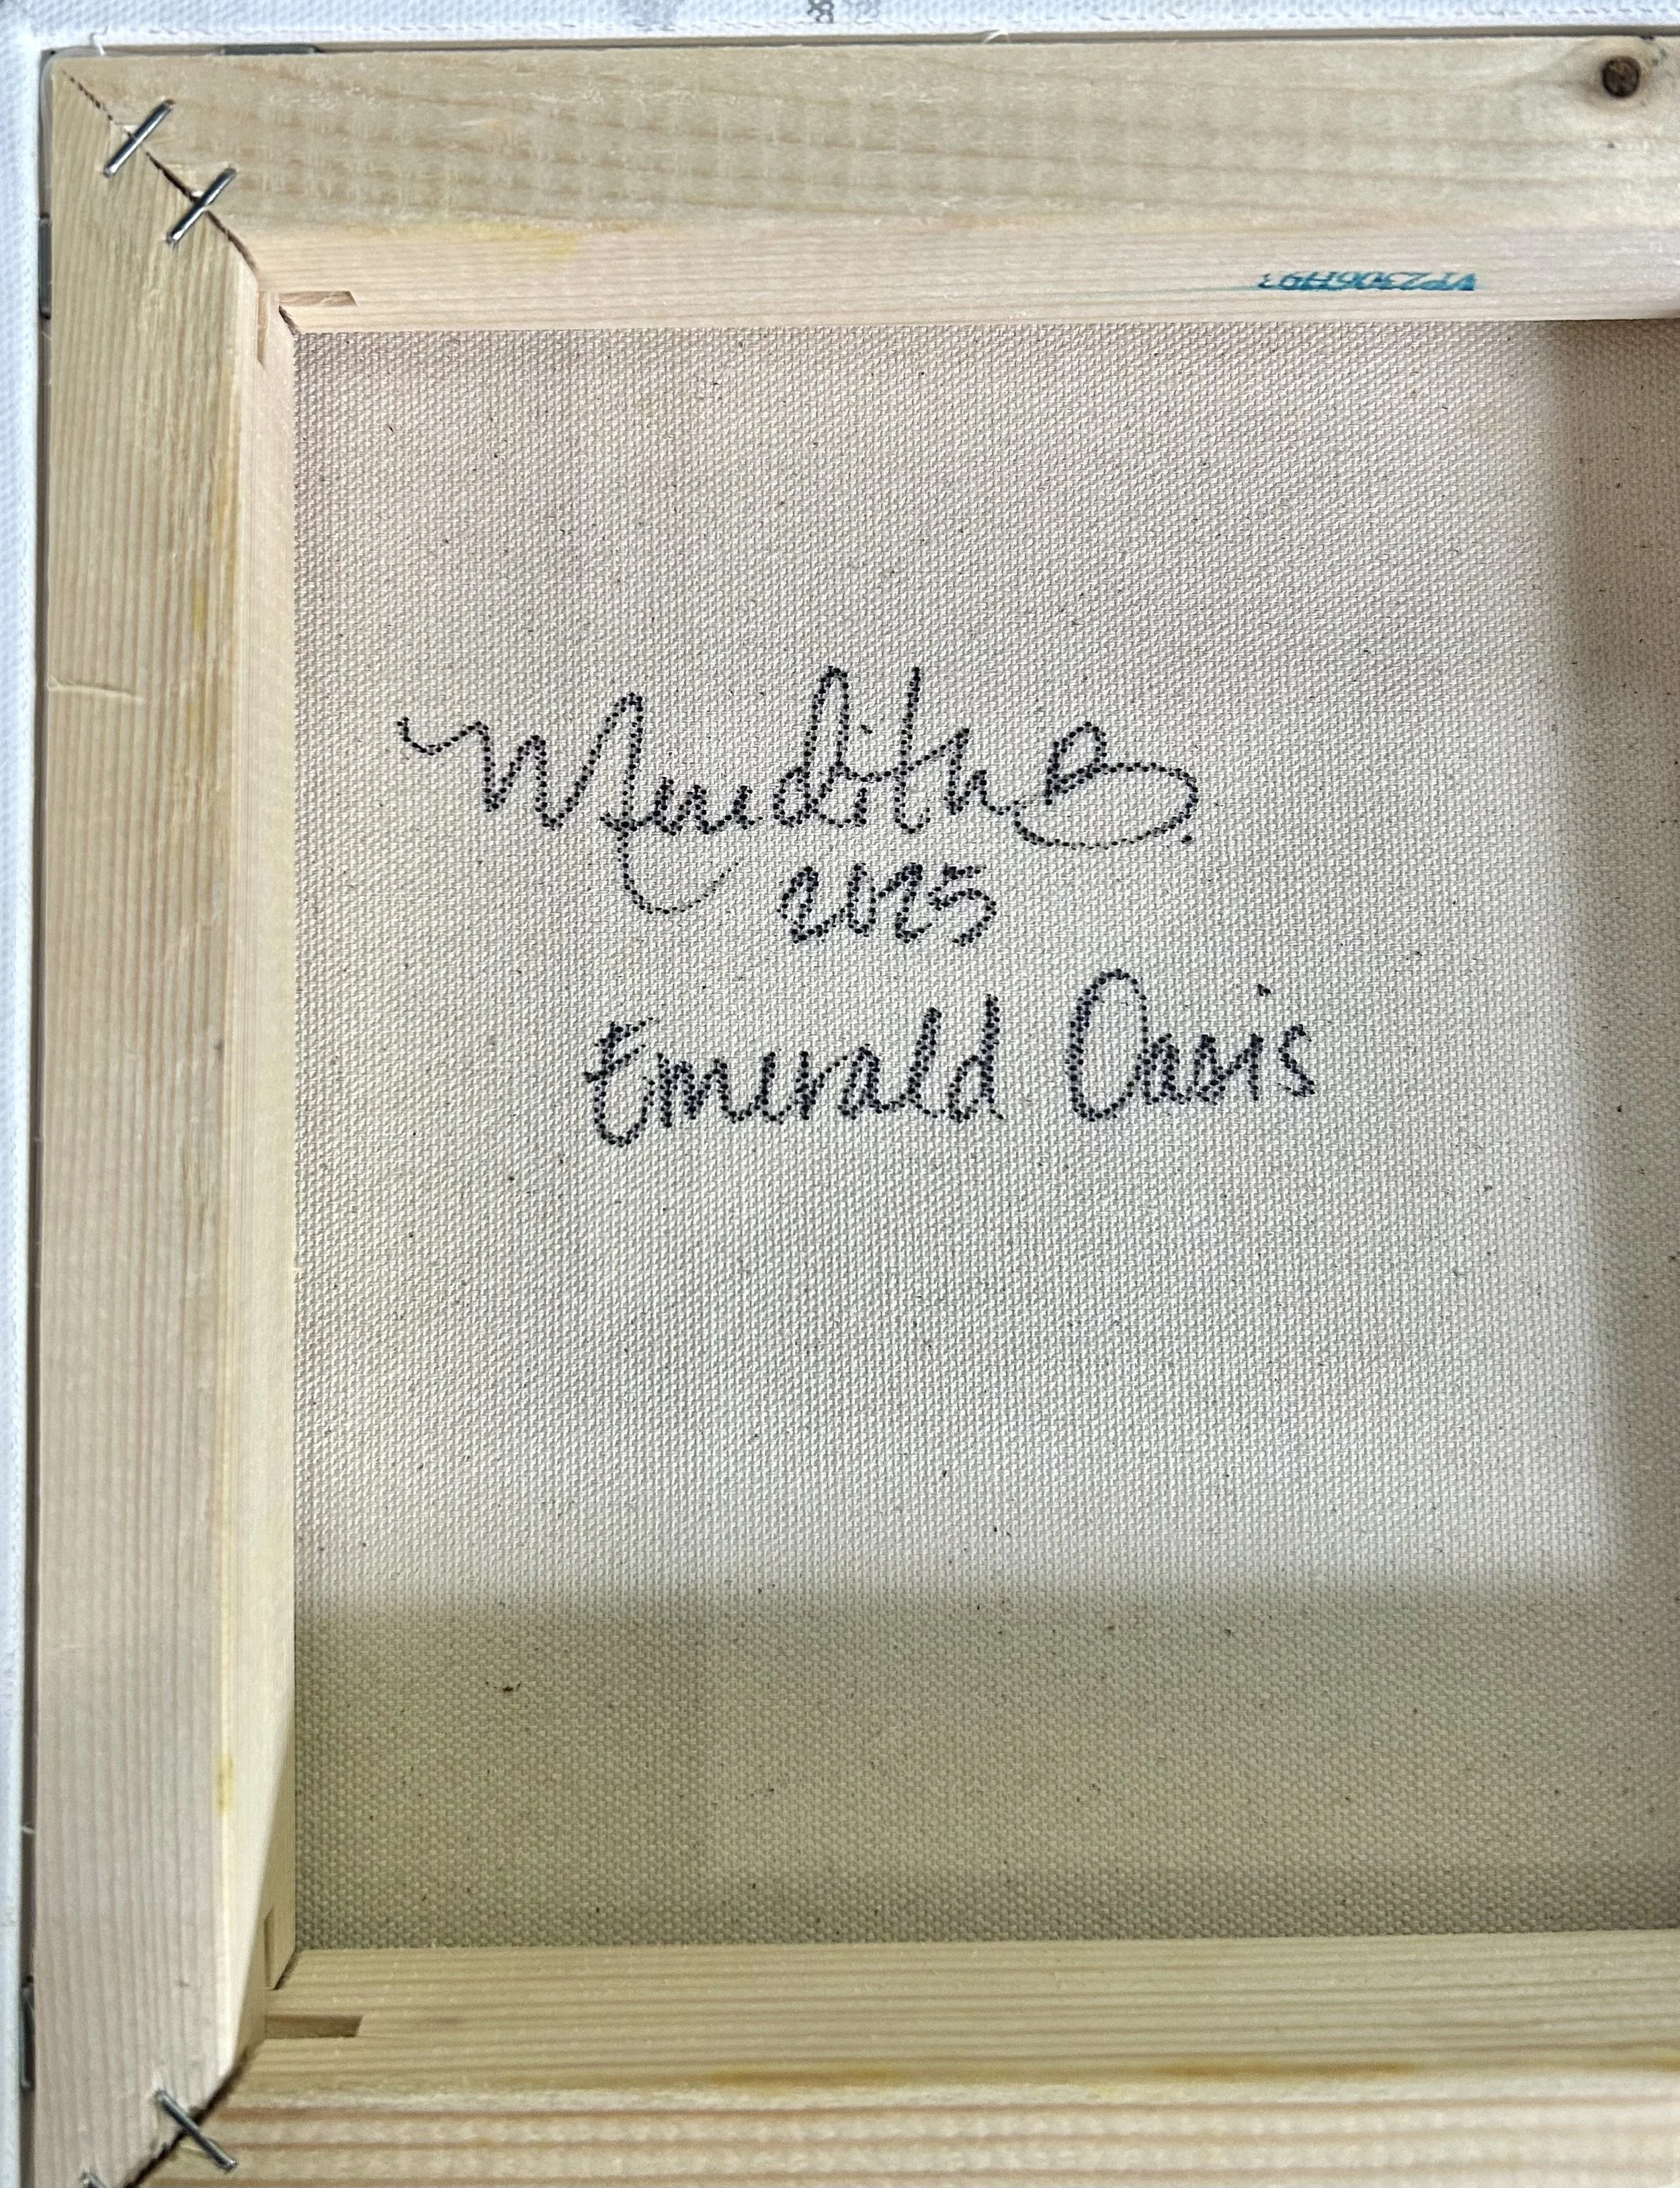 Meredith B.
2025
Emerald Oasis